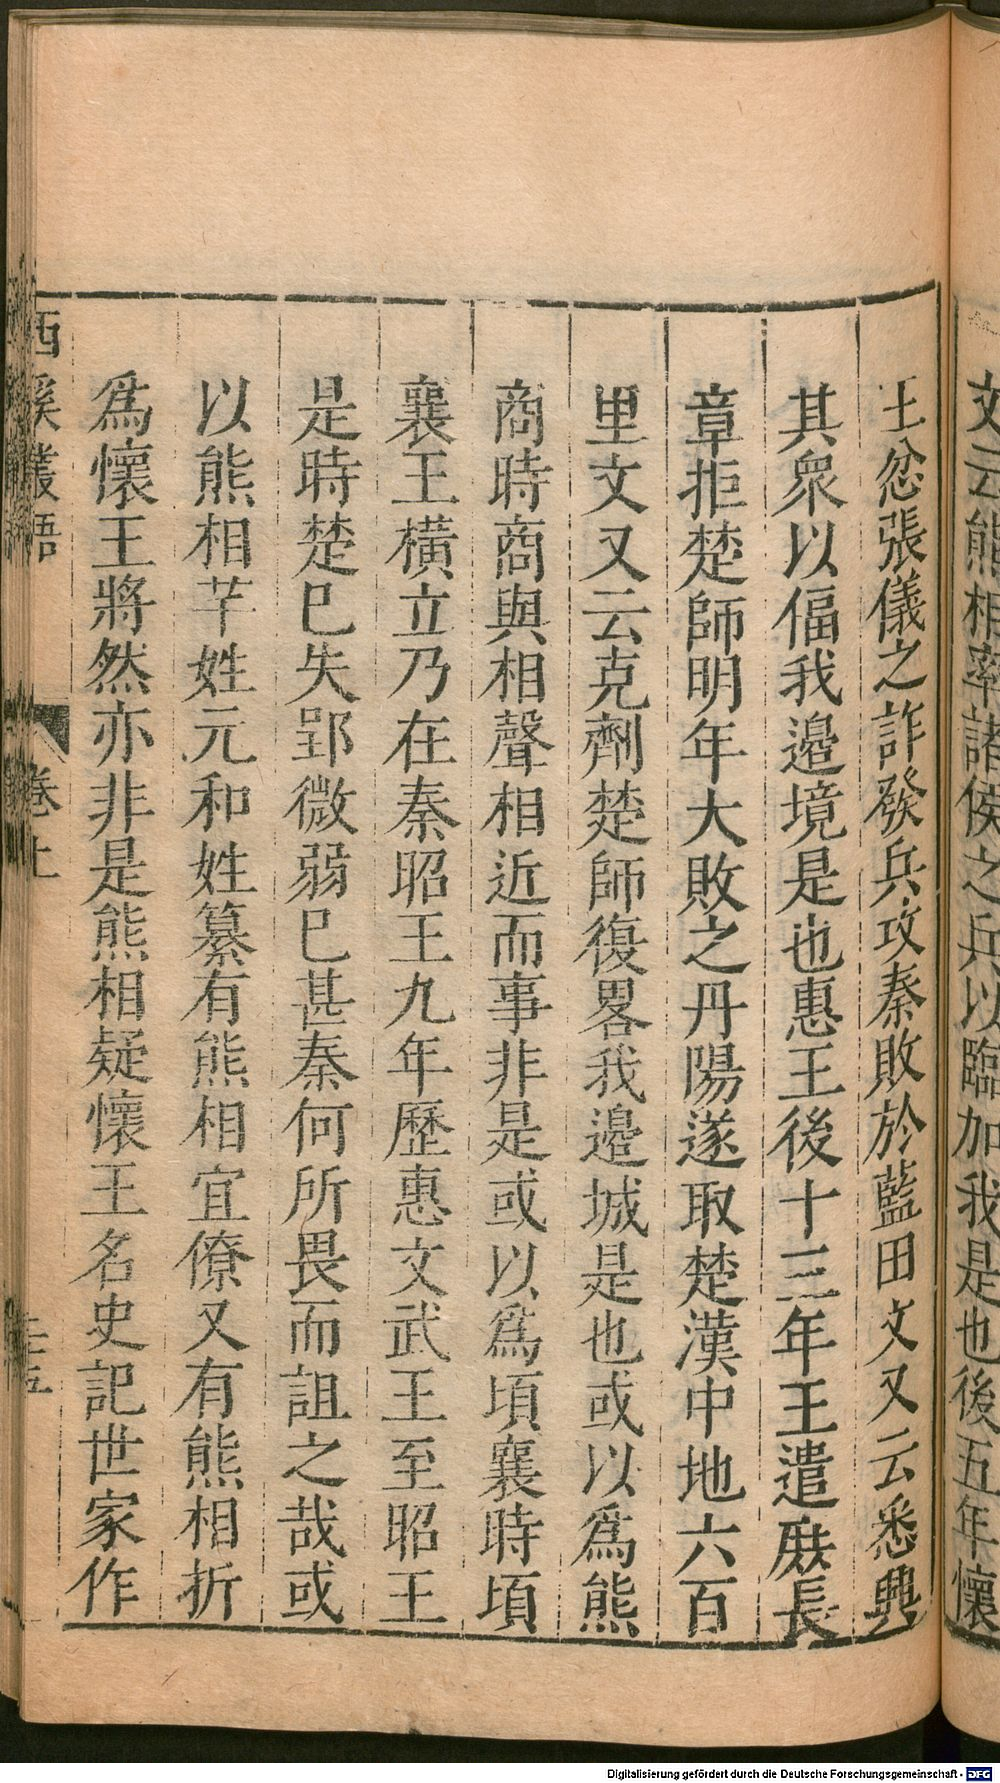 文云熊相率諸侯之兵以臨加我是也後五年懷
王忿張儀之詐發兵攻秦敗於藍田文又云悉興
其衆以偪我邉境是也惠王後十三年王遣庶長
章拒楚師明年大敗之丹陽遂取楚漢中地六百
里文又云克劑楚師復畧我邉城是也或以爲熊
商時商與相聲相近而事非是或以爲頃襄時頃
襄王橫立乃在秦昭王九年歷惠文武王至昭王
是時楚巳失郢微弱巳甚秦何所畏而詛之哉或
以熊相芊姓元和姓纂有熊相宜僚又有熊相折
爲懷王將然亦非是熊相疑懷王名史記世家作
西溪叢語 卷上
Digitalisierung gefördert durch die Deutsche Forschungsgemeinschaft - DFG